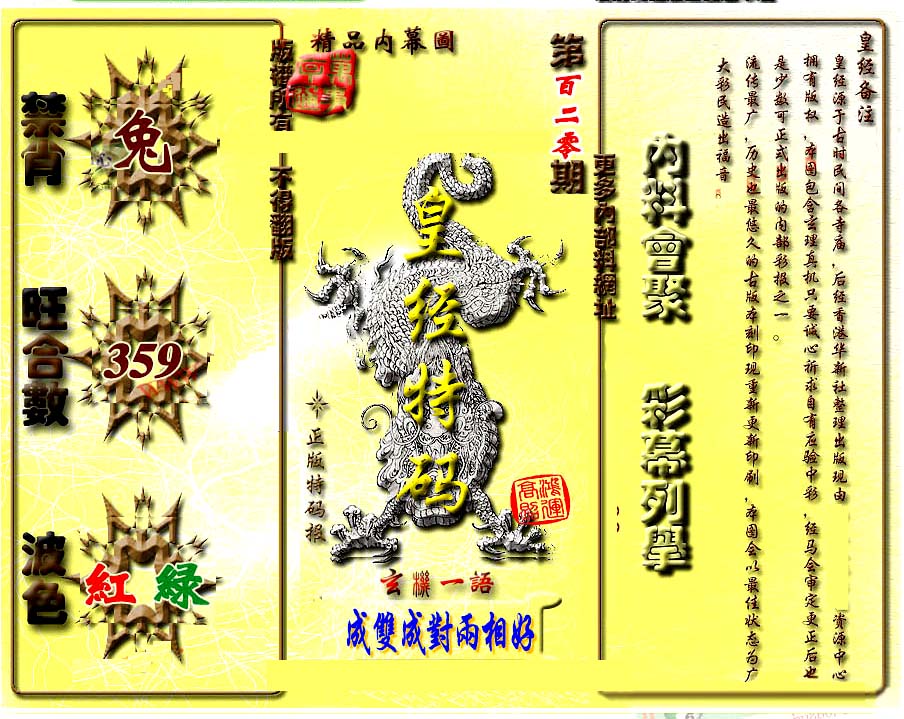 皇经备注
皇经源于古时民间各寺庙，后经香港华新社整理出版现由 资源中心
拥有版权，本图包含玄理真机只要诚心祈求自有应验中彩，经马会审定更正后也
是少数可正式出版的内部彩报之一。
流传最广，历史也最悠久的古版本刻印现重新更新印刷，本图会以最佳状态为广
大彩民造出福音
內料會聚
彩幕列舉
更多內部料網址
第百二零期
精品内幕圖
版權所有
不得翻版
皇经特码
正版特码报
鴻運高照
玄機一語
成雙成對兩相好
禁肖
兔
旺合數
359
波色
紅 綠